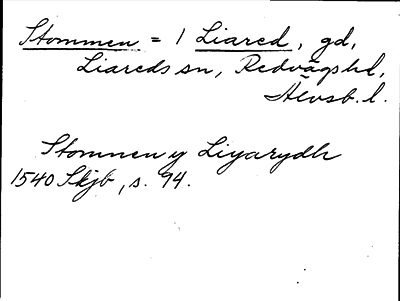 Stommen = 1 Liared, gd,
Liareds sn, Redvägs hd,
Älvsb. l.
Stommen y Liyarydh
1540 Skjb, s. 94.